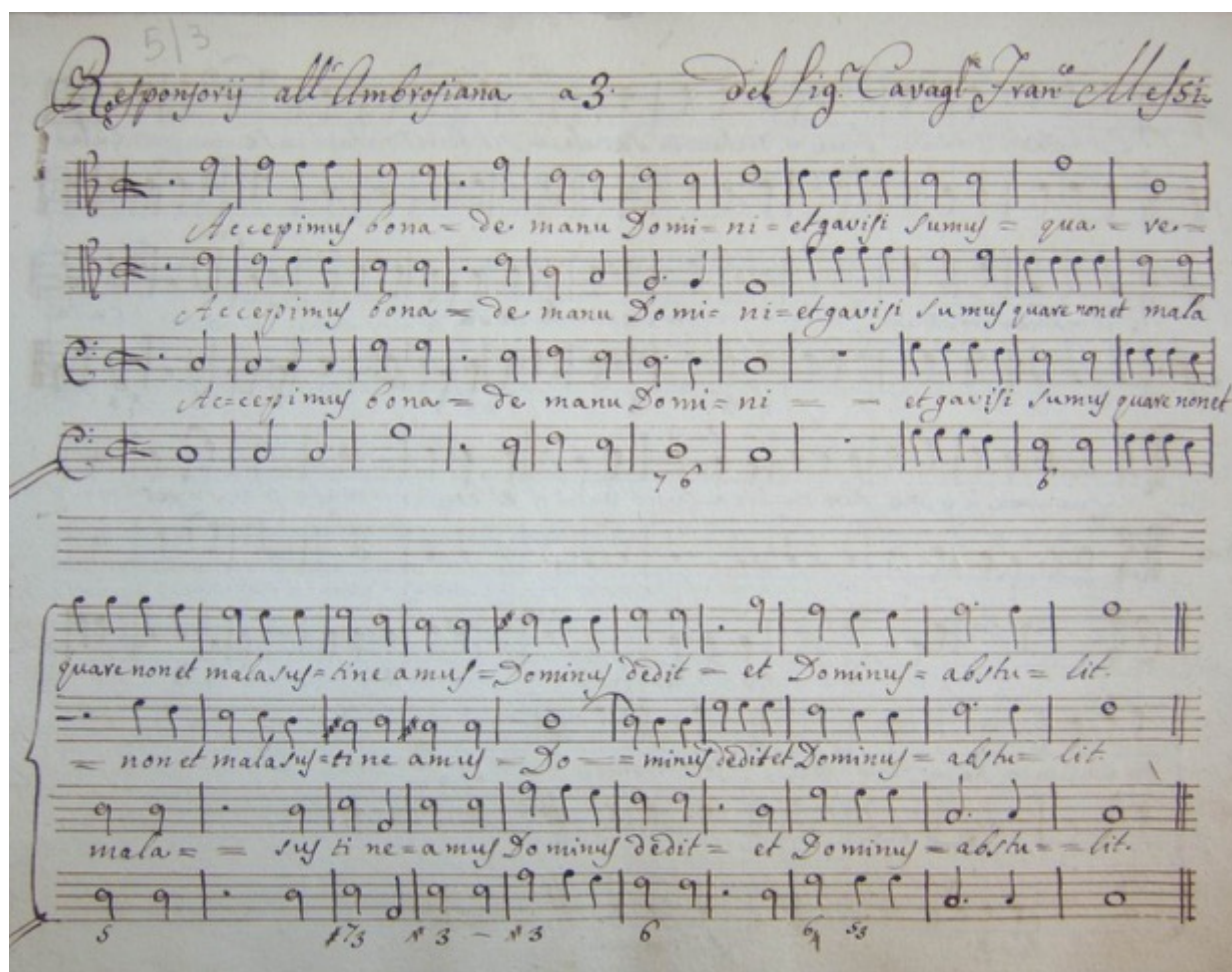 5/3
Responsorij all'Ambrosiana a 3. del Sig.r Cavagl.re Fran.co Messi
Accepimus bona = de manu Domi= ni = et gavisi sumus = qua = ve =
Accepimus bona = de manu Domi= ni = et gavisi sumus quare non et mala
Ac=cepimus bona = de manu Domi= ni = = et gavisi sumus quare non et
7 6 6
quare non et mala sus=tine amus = Dominus dedit = et Dominus = abstu= lit.
= non et mala sus=ti ne amus = Do = = minus dedit et Dominus = abstu= lit.
mala = = sus ti ne=amus Dominus dedit = et Dominus = abstu= =lit.
5 #73 # 3 – # 3 6 6 4 53